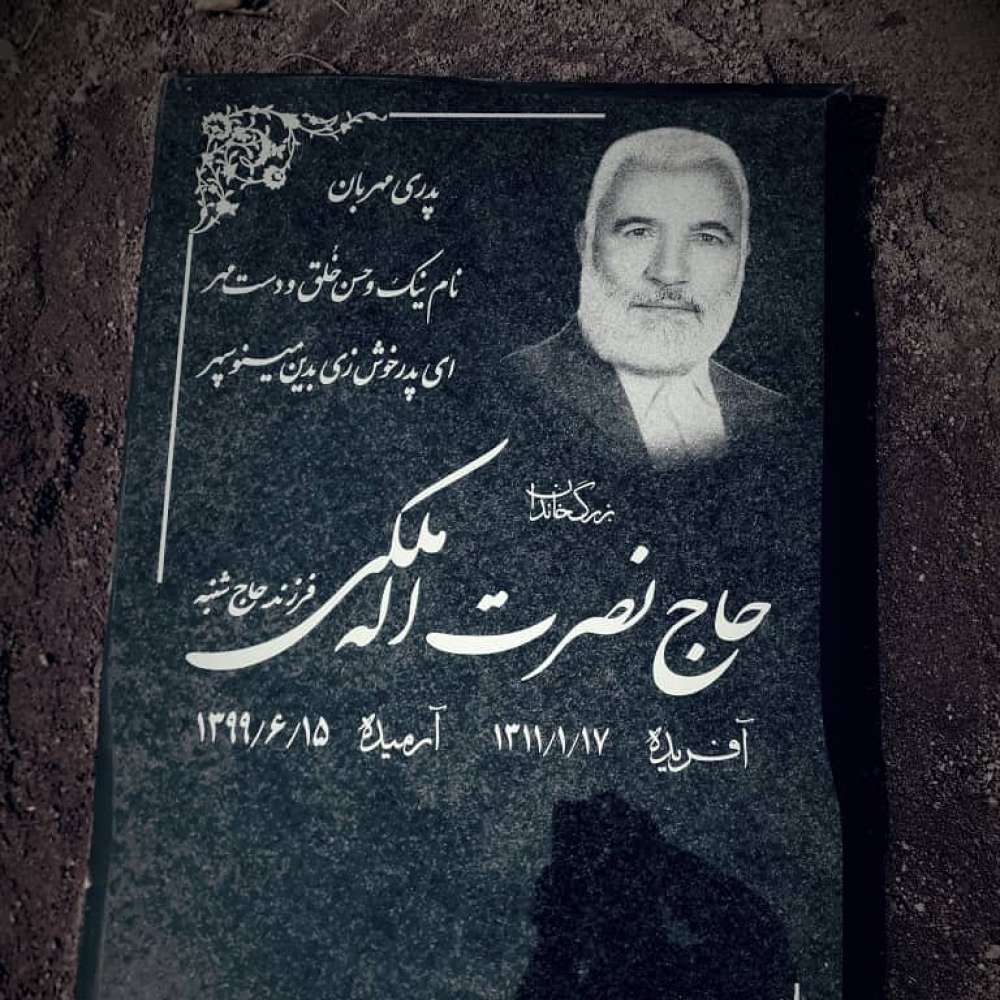 پدری مهربان
نام نیک و حسن خُلق و دست مهر
ای پدر خوش زی بدین مینو سپهر
بزرگ خاندان
حاج نصرت اله ملکی فرزند حاج شنبه
آفریده ۱۳۱۱/۱/۱۷ آرمیده ۱۳۹۹/۶/۱۵